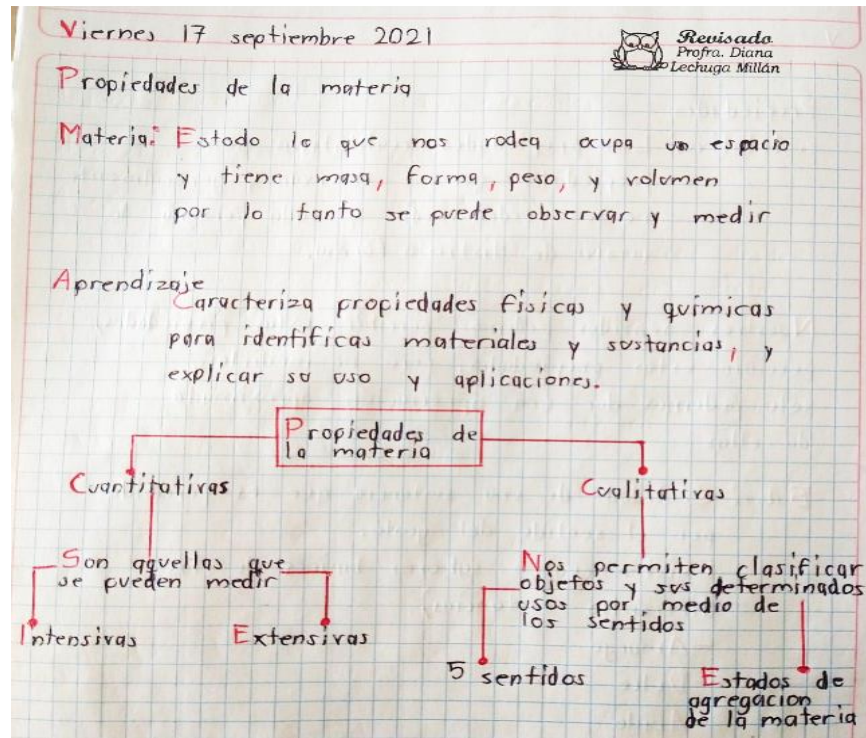 Viernes 17 septiembre 2021
Revisado
Profra. Diana
Lechuga Millán
Propiedades de la materia
Materia: Es todo lo que nos rodea ocupa un espacio
y tiene masa, forma, peso, y volumen
por lo tanto se puede observar y medir
Aprendizaje
Caracteriza propiedades físicas y químicas
para identificas materiales y sustancias, y
explicar su uso y aplicaciones.
Propiedades de
la materia
Cuantitativas
Son aquellas que
se pueden medir
Intensivas
Extensivas
Cualitativas
Nos permiten clasificar
objetos y sus determinados
usos por medio de
los sentidos
5 sentidos
Estados de
agregacion
de la materia